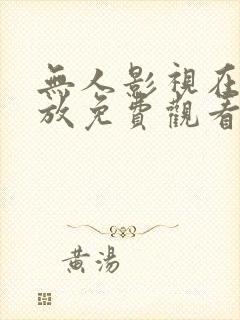 無人影視在
放免費觀看
黃湯